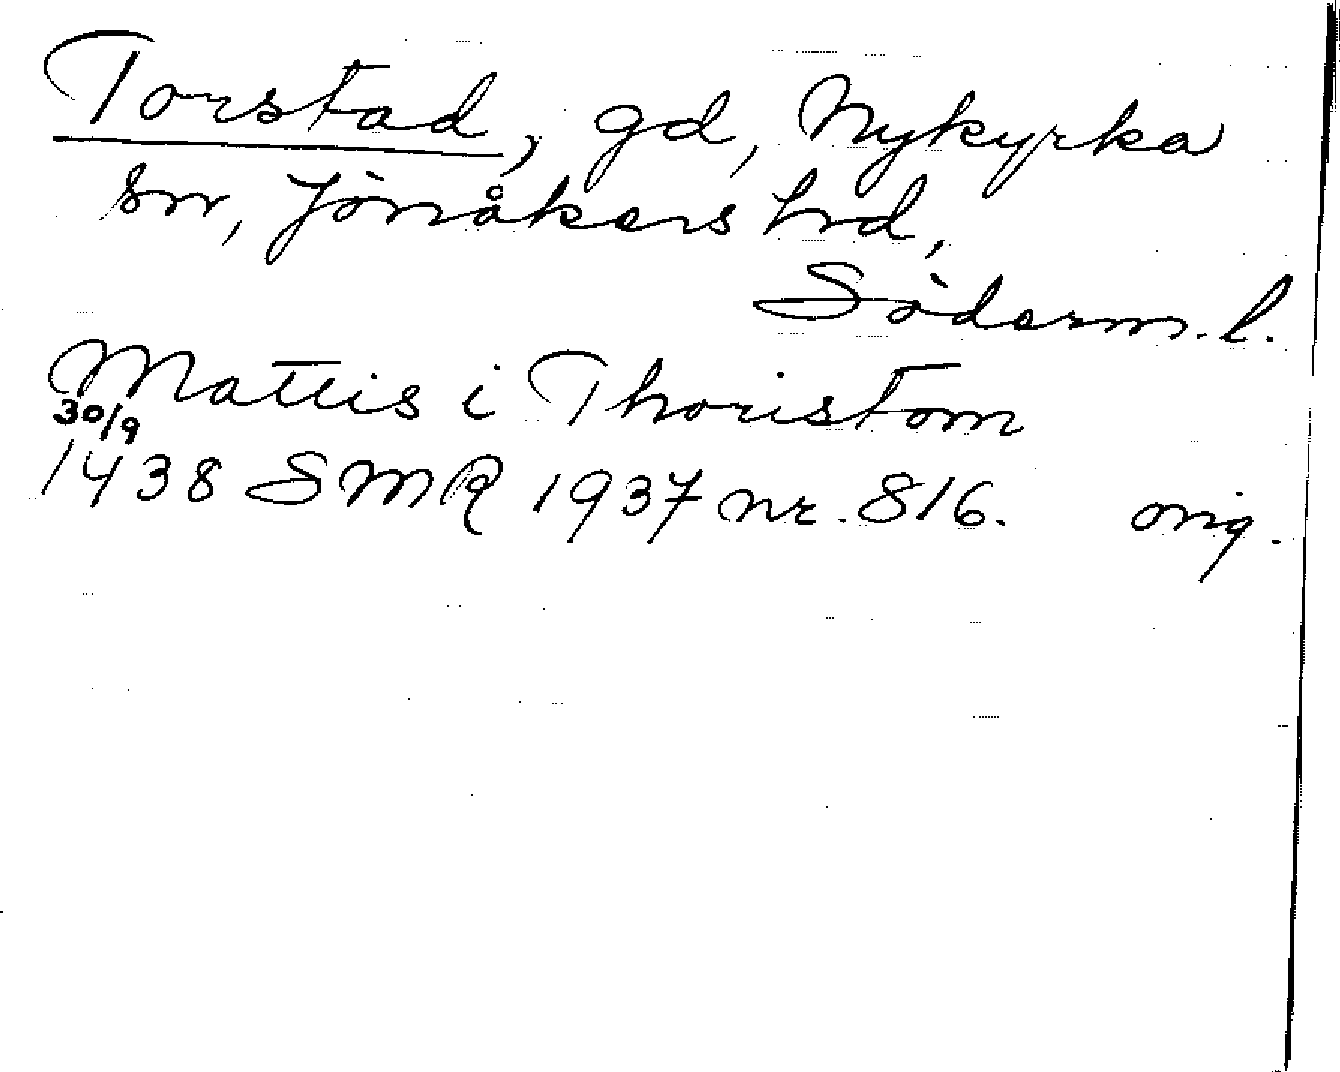 Torstad, gd, Nykyrka
sn, Jönåkers hrd,
Söderm. l.
Mattis i Thoristom
30/9
1438 SMR 1937 nr. 816. orig.